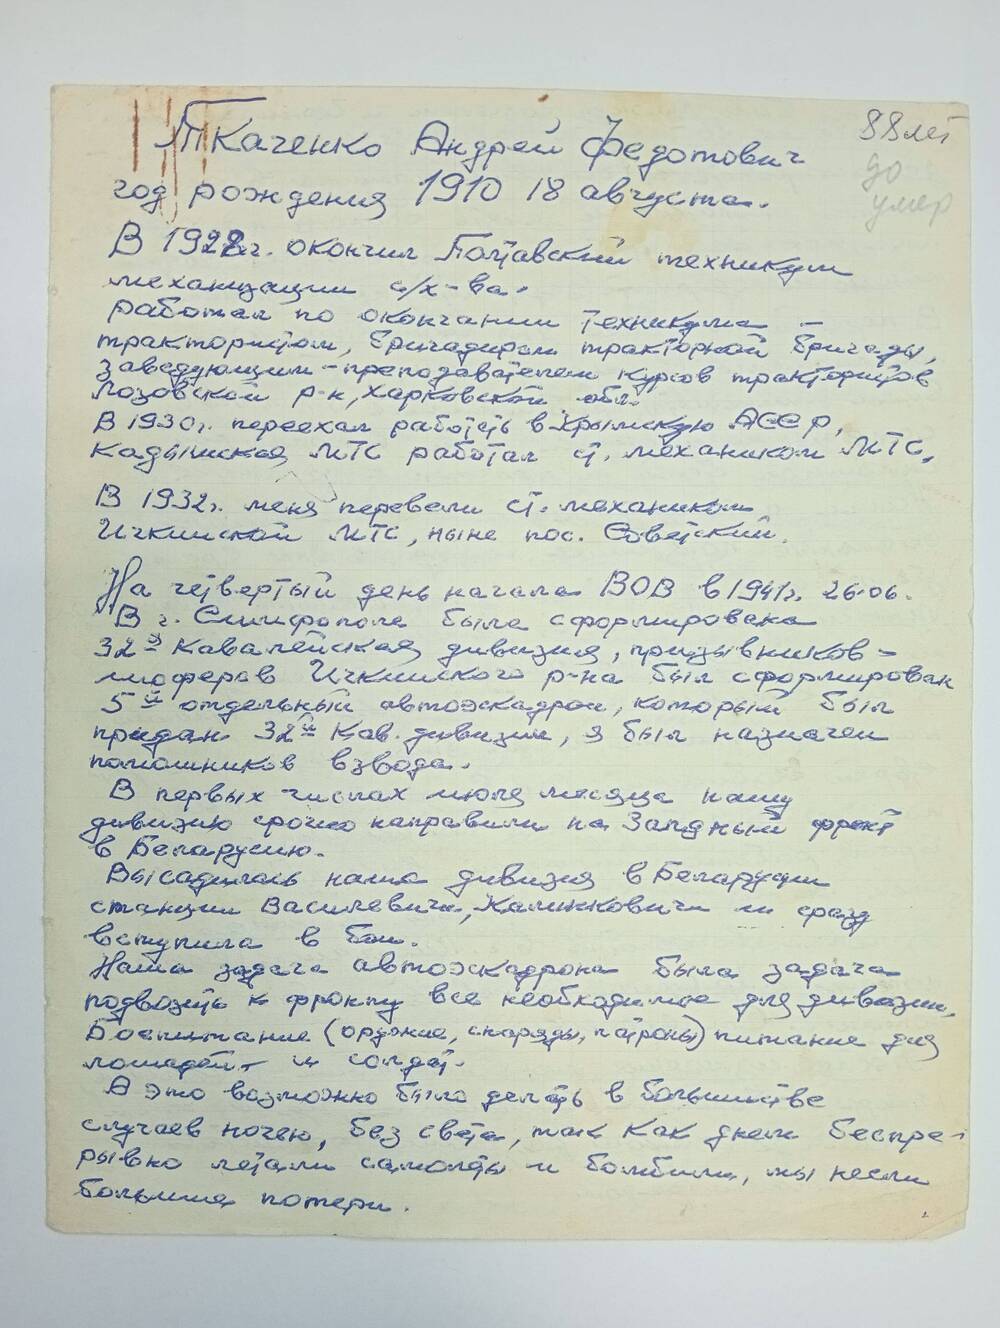 Ткаченко Андрей Федотович
88 лет
до
умер
год рождения 1910 18 августа.
В 1928г. окончил Полтавский техникум
механизации с/х-ва.
работал по окончании техникума –
трактористом, бригадиром тракторной бригады,
заведующим-преподавателем курсов трактористов
Лозовской р-н, Харковской обл.
В 1930г. переехал работать в Крымскую АССР,
Кадышская МТС работал ст. механиком МТС,
В 1932г. меня перевели ст. механиком
Ичкинской МТС, ныне пос. Советский.
На четвертый день начала ВОВ в 1941г. 26.06.
В г. Симферополе была сформирована
32я Кавалейская дивизия, призывников –
шоферов Ичкинского р-на был сформирован
5й отдельный автоэскадрон, который был
придан 32й Кав. дивизии, я был назначен
помошников взвода.
В первых числах июля месяца нашу
дивизию срочно направили на Западный фронт
в Беларусию.
Высадилась наша дивизия в Беларусии
станции Василевичи, Калинковичи и сразу
вступила в бои.
Наша задача автоэскадрона была задача
подвозить к фронту все необходимое для дивизии,
Боепитание (оружие, снаряды, патроны) питание для
лошадей и солдат.
А это возможно было делать в большинстве
случаев ночею, без света, так как днем беспре-
рывно летали самолеты и бомбили, мы несли
большие потери.